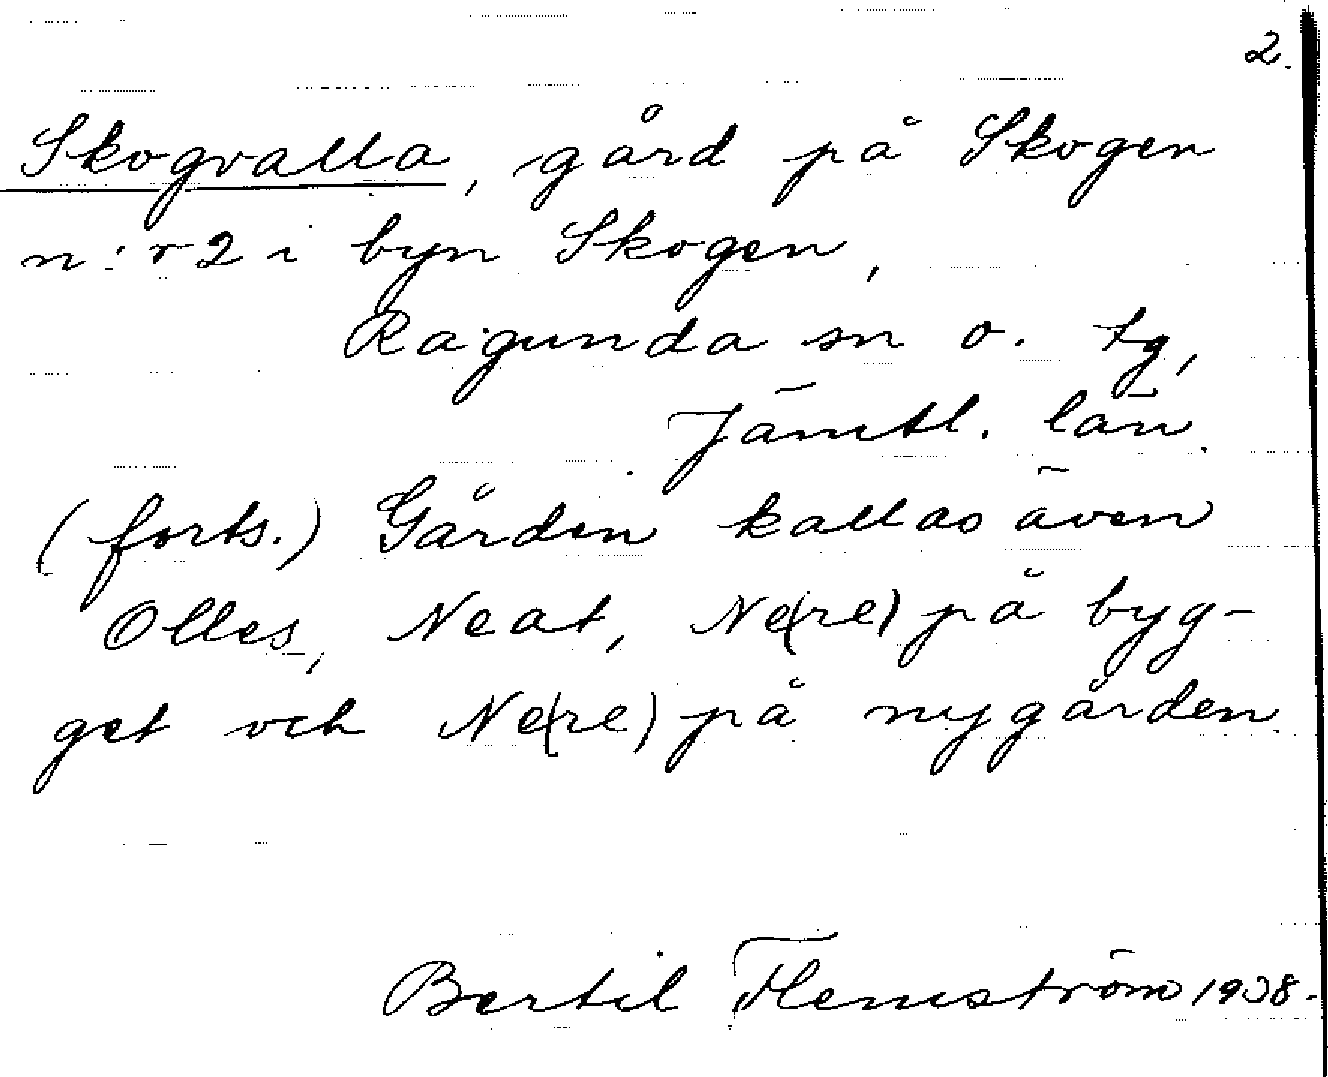 2.
Skogvalla, gård på Skogen
n:r 2 i byn Skogen,
Ragunda sn o. tg,
Jämtl. län.
(forts.) Gården kallas även
Olles, Neat, Ne(re) på byg-
get och Ne(re) på nygården.
Bertil Flemström 1938.